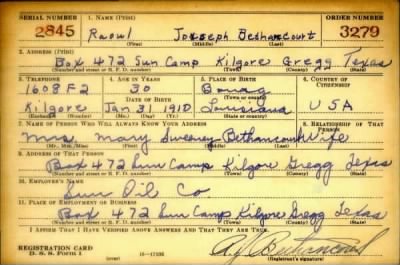 SERIAL NUMBER 1. NAME (Print) ORDER NUMBER
2845 Raoul Joseseph Bethancourt 3279
(First) (Middle) (Last)
2. ADDRESS (Print)
Box 472 Sun Camp Kilgore Gregg Texas
(Number and street or R. F. D. number) (Town) (County) (State)
3. TELEPHONE 4. AGE IN YEARS 5. PLACE OF BIRTH 6. COUNTRY OF CITIZENSHIP
1608F2 30 Bourg
(Town or county)
Kilgore DATE OF BIRTH Jan 31 1910 Louisiana USA
(Exchange) (Number) (Mo.) (Day) (Yr.) (State or country)
7. NAME OF PERSON WHO WILL ALWAYS KNOW YOUR ADDRESS 8. RELATIONSHIP OF THAT PERSON
Mrs Mary Sweeney Bethancourt Wife
(Mr., Mrs., Miss) (First) (Middle) (Last)
9. ADDRESS OF THAT PERSON
Box 472 Sun Camp Kilgore Gregg Texas
(Number and street or R. F. D. number) (Town) (County) (State)
10. EMPLOYER'S NAME
Sun Oil Co
11. PLACE OF EMPLOYMENT OR BUSINESS
Box 472 Sun Camp Kilgore Gregg Texas
(Number and street or R. F. D. number) (Town) (County) (State)
I AFFIRM THAT I HAVE VERIFIED ABOVE ANSWERS AND THAT THEY ARE TRUE.
REGISTRATION CARD
D. S. S. Form 1 16—17105 R J Bethancourt
(Registrant's signature)